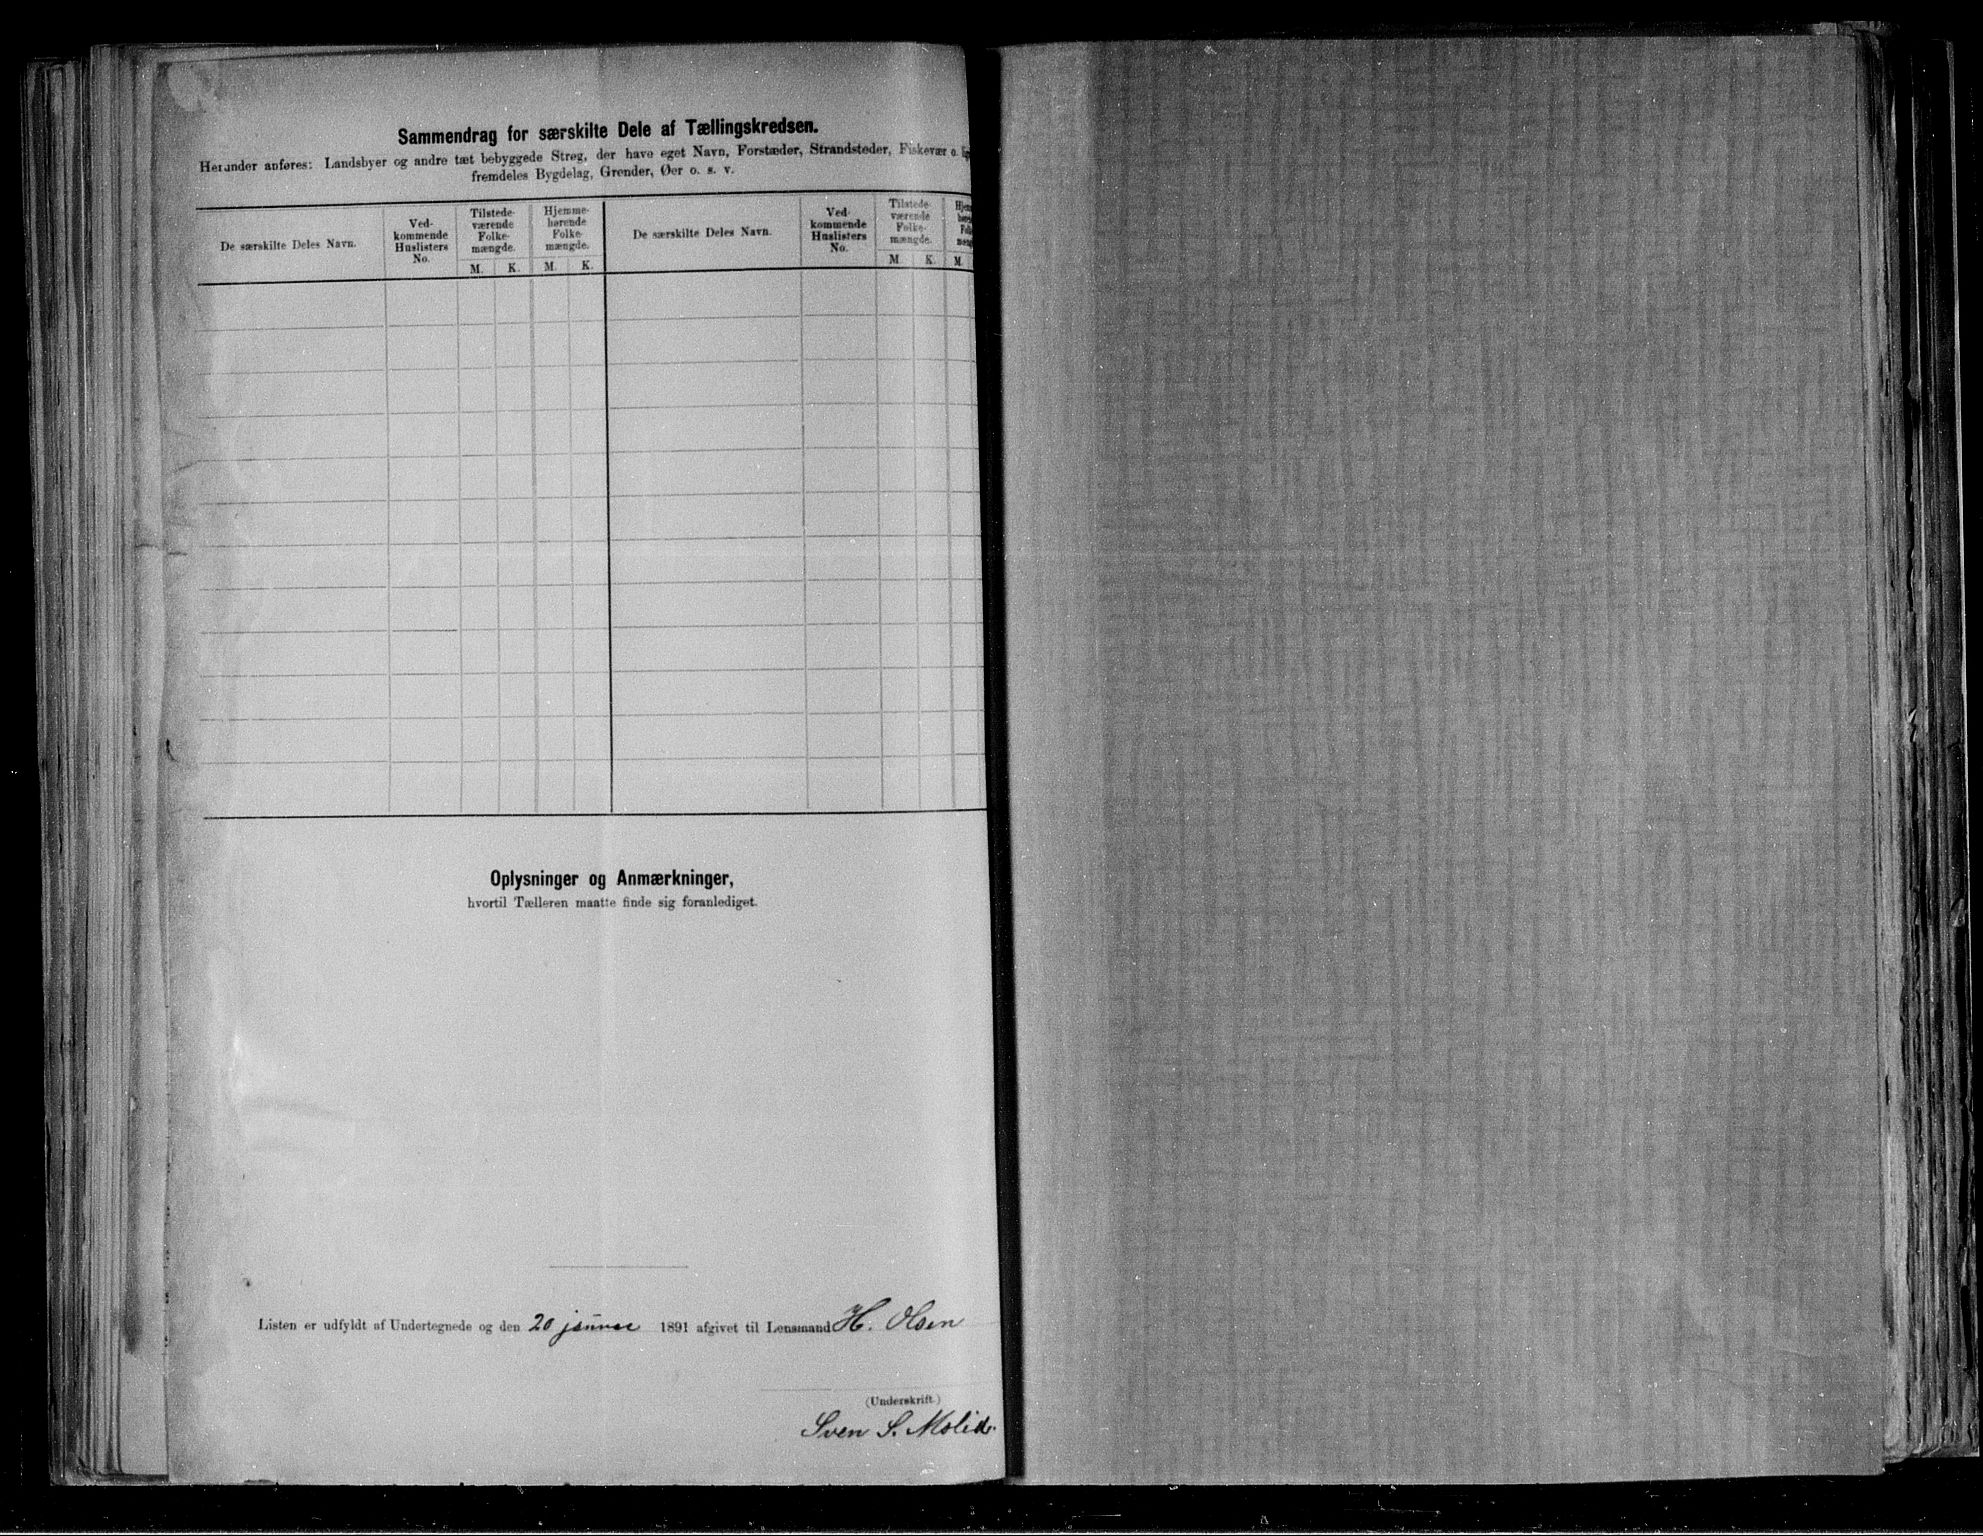 Sammendrag for særskilte Dele af Tællingskredsen.
Herunder anføres: Landsbyer og andre tæt bebyggede Strøg, der have eget Navn, Forstæder, Strandsteder, Fiskevær o.
fremdeles Bygdelag, Grender, Øer o. s. v.
De særskilte Deles Navn.
Ved-
kommende
Huslisters
No.
Tilstede-
værende
Folke-
mængde.
M. K.
Hjemme-
hørende
Folke-
mængde.
M. K.
De særskilte Deles Navn.
Ved-
kommende
Huslisters
No.
Tilstede-
værende
Folke-
mængde.
M. K.
M.
Oplysninger og Anmærkninger,
hvortil Tælleren maatte finde sig foranlediget.
Listen er udfyldt af Undertegnede og den 20 januar 1891 afgivet til Lensmand H. Olsen
(Underskrift.)
Sven S. Molid